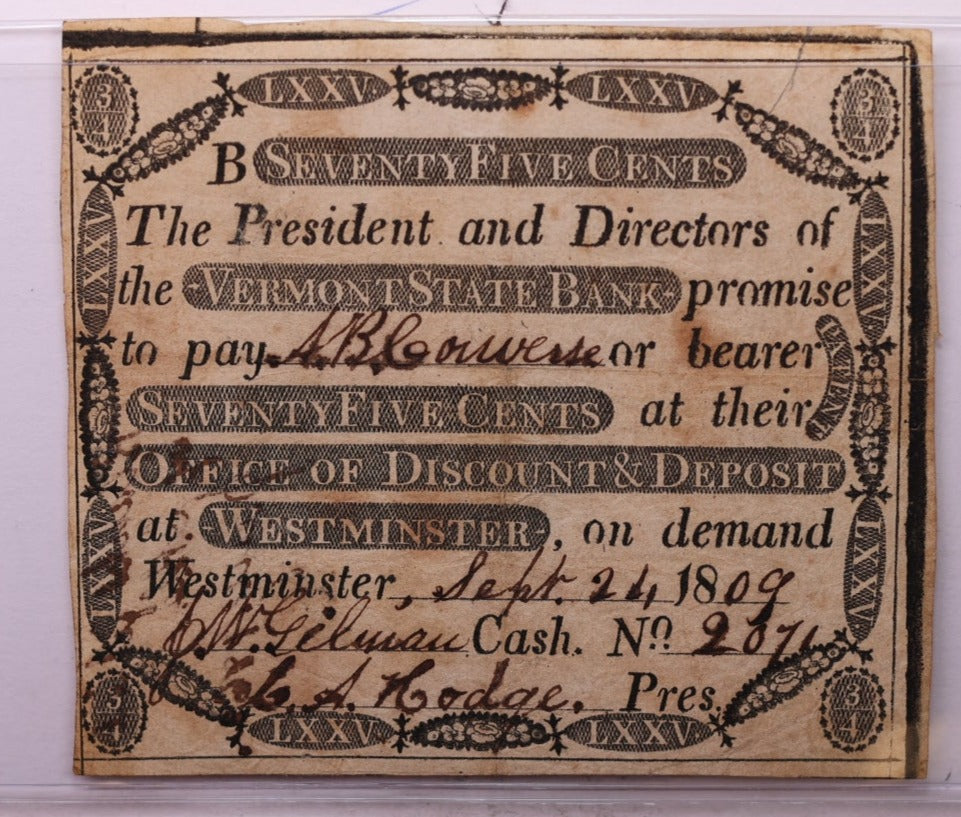 3/4 LXXV. LXXV. 3/4
B SEVENTY FIVE CENTS
The President and Directors of
the -VERMONT STATE BANK- promise
to pay A.B. Converse or bearer
SEVENTY FIVE CENTS at their
OFFICE OF DISCOUNT & DEPOSIT
at WESTMINSTER, on demand
Westminster, Sept. 24, 1809
J.W. Gilman Cash. No. 2071
C. A. Hodge. Pres.
3/4 LXXV. LXXV. 3/4
LXXV
LXXV
LXXV
LXXV
VERMONT